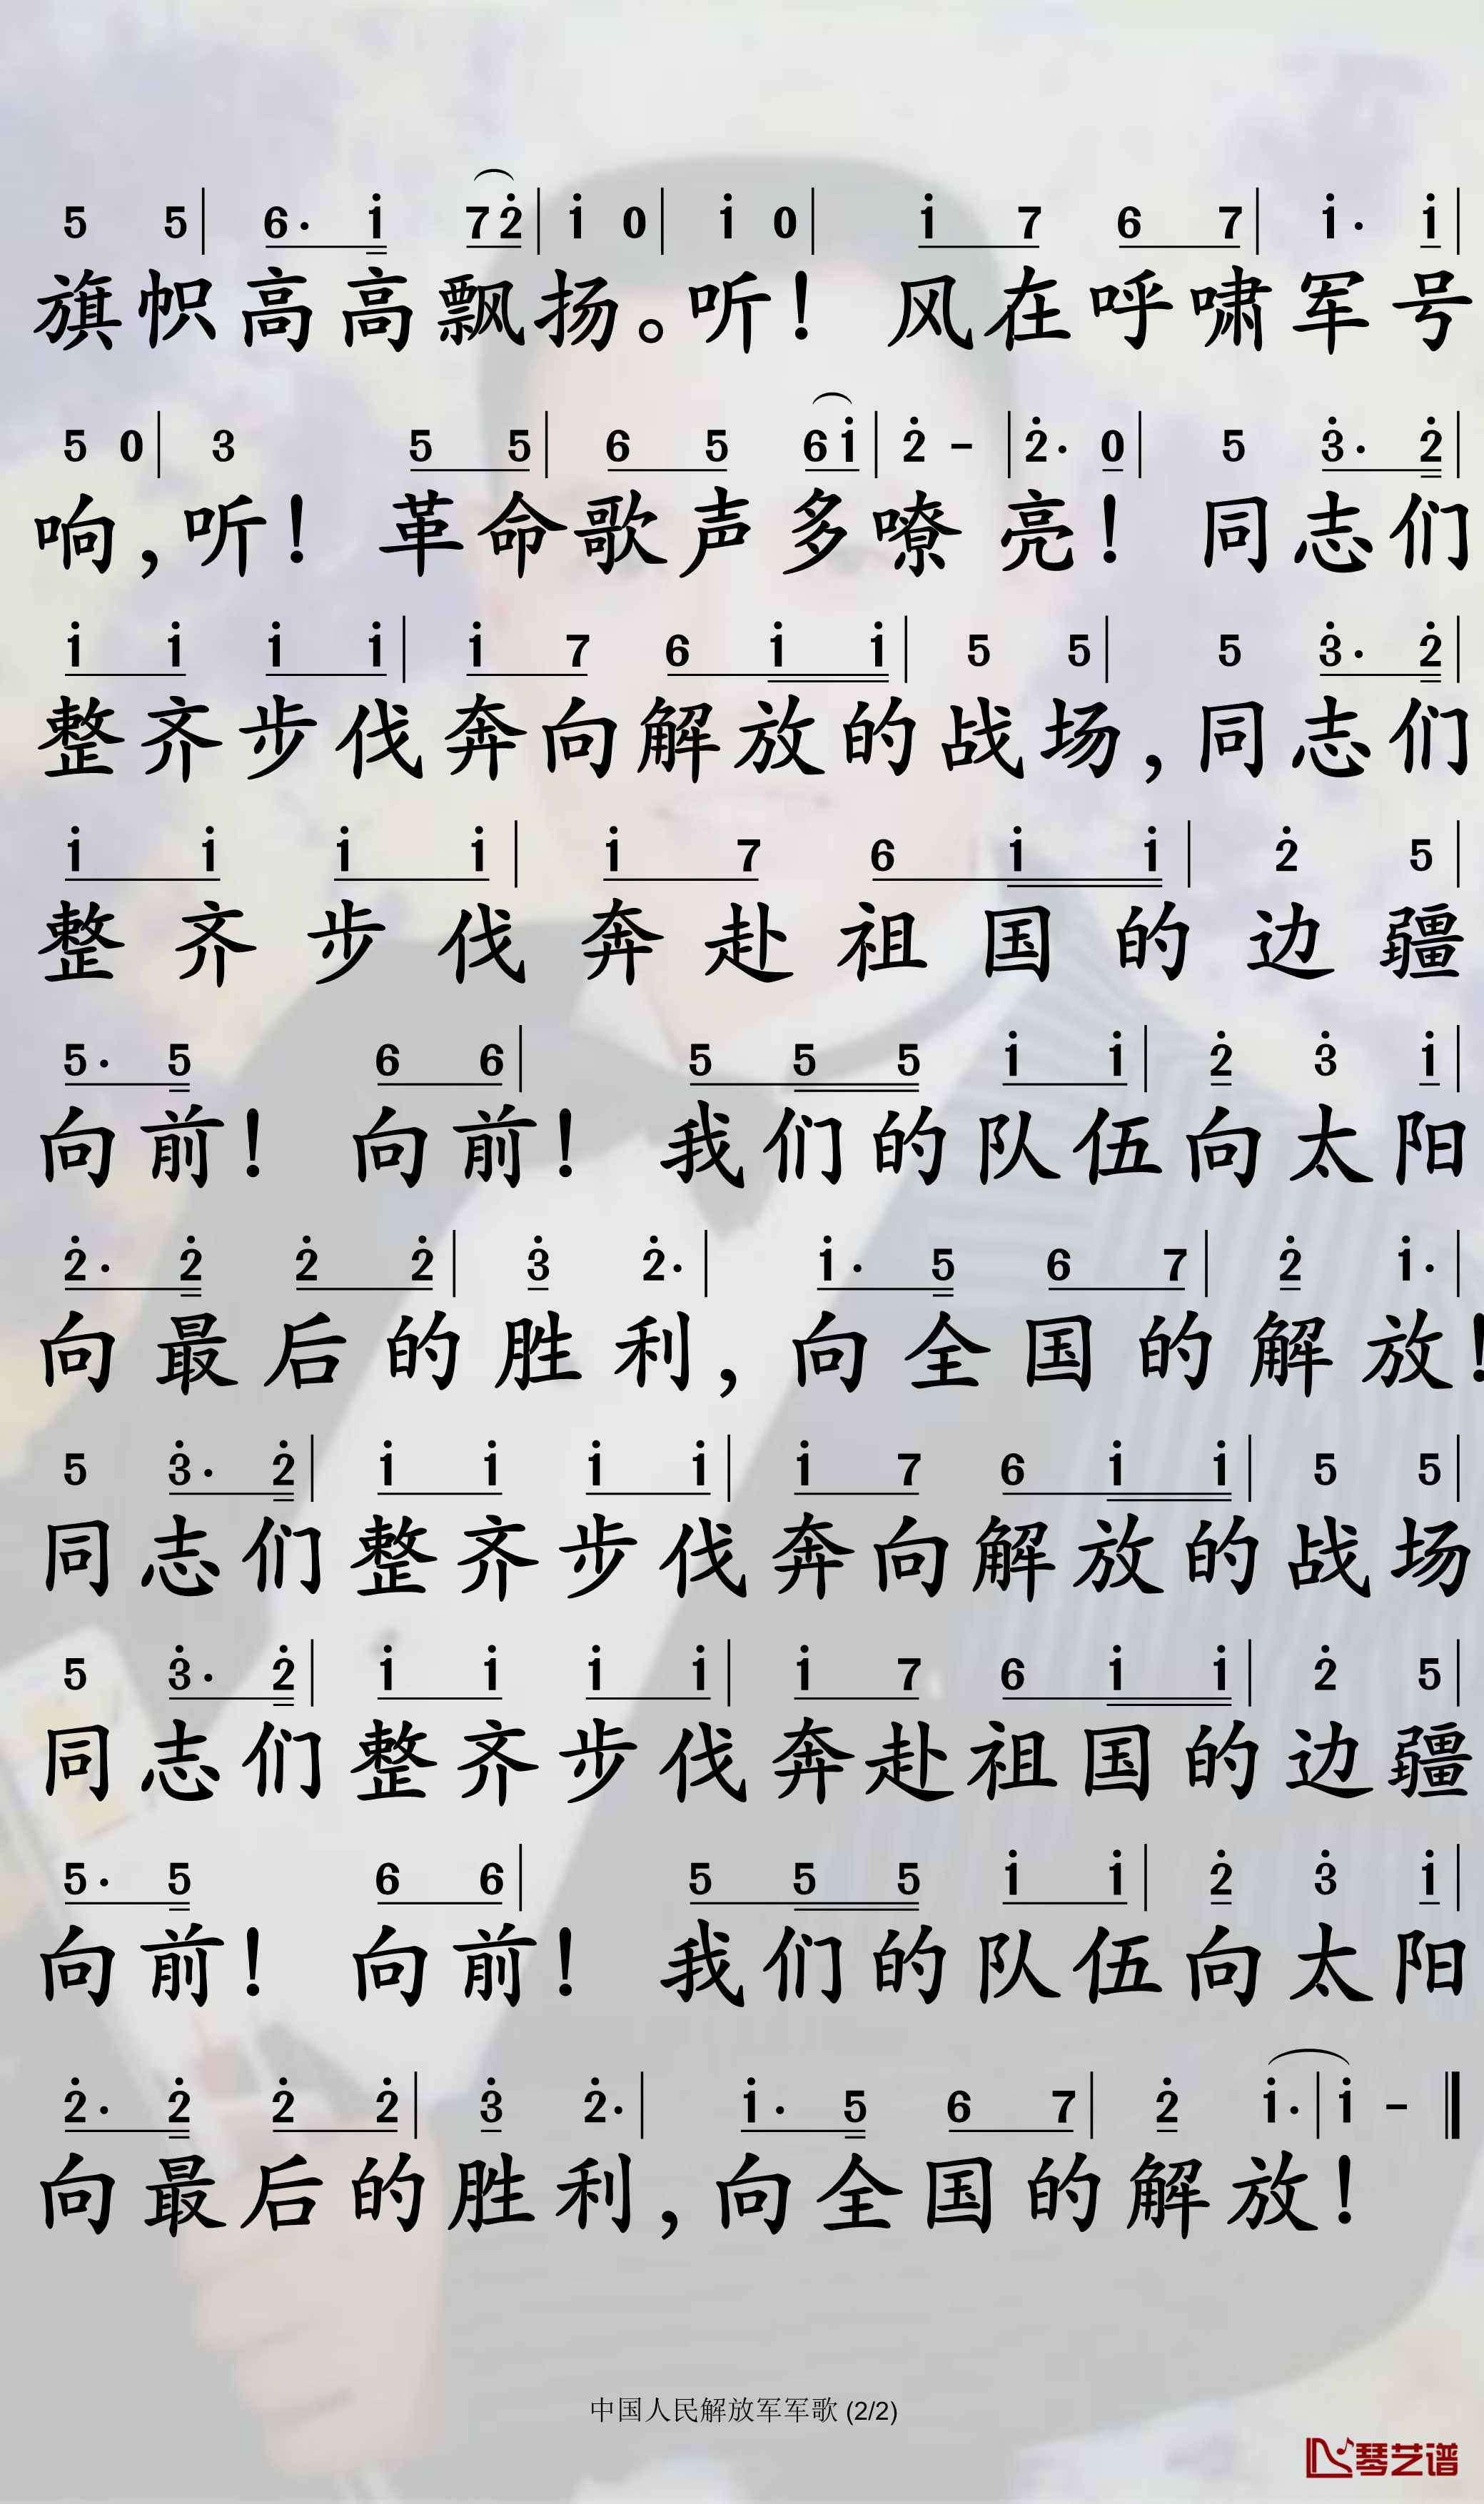 5 5 | 6· i 7 2 | i 0 | i 0 | i 7 6 7 | i· i |
旗帜高高飘扬。听！风在呼啸军号
5 0 | 3 5 5 | 6 5 6 i | 2 - | 2· 0 | 5 3· 2 |
响，听！革命歌声多嘹亮！同志们
i i i i | i 7 6 i i | 5 5 | 5 3· 2 |
整齐步伐奔向解放的战场，同志们
i i i i | i 7 6 i i | 2 5 |
整齐步伐奔赴祖国的边疆
5· 5 6 6 | 5 5 5 i i | 2 3 i |
向前！向前！我们的队伍向太阳
2· 2 2 2 | 3 2· | i· 5 6 7 | 2 i· |
向最后的胜利，向全国的解放！
5 3· 2 | i i i i | i 7 6 i i | 5 5 |
同志们整齐步伐奔向解放的战场
5 3· 2 | i i i i | i 7 6 i i | 2 5 |
同志们整齐步伐奔赴祖国的边疆
5· 5 6 6 | 5 5 5 i i | 2 3 i |
向前！向前！我们的队伍向太阳
2· 2 2 2 | 3 2· | i· 5 6 7 | 2 i· | i - ‖
向最后的胜利，向全国的解放！
中国人民解放军军歌 (2/2)
琴艺谱